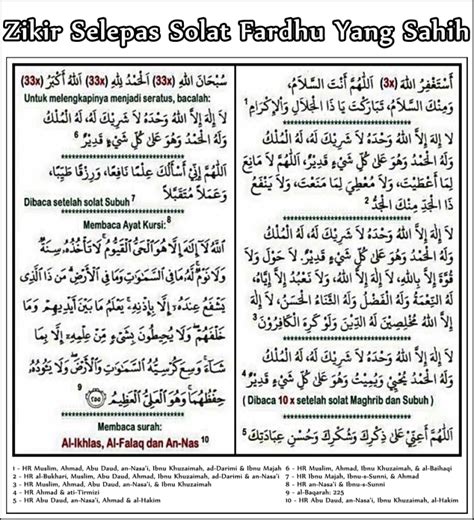 Zikir Selepas Solat Fardhu Yang Sahih
أَسْتَغْفِرُ اللهَ (3x) اَللَّهُمَّ أَنْتَ السَّلَامُ،
وَمِنْكَ السَّلَامُ، تَبَارَكْتَ يَا ذَا الْجَلَالِ وَالْإِكْرَامِ 1
لَا إِلَهَ إِلَّا اللهُ وَحْدَهُ لَا شَرِيْكَ لَهُ، لَهُ الْمُلْكُ
وَلَهُ الْحَمْدُ وَهُوَ عَلَى كُلِّ شَيْءٍ قَدِيْرٌ، اَللَّهُمَّ لَا مَانِعَ
لِمَا أَعْطَيْتَ، وَلَا مُعْطِيَ لِمَا مَنَعْتَ، وَلَا يَنْفَعُ
ذَا الْجَدِّ مِنْكَ الْجَدُّ 2
لَا إِلَهَ إِلَّا اللهُ وَحْدَهُ لَا شَرِيْكَ لَهُ، لَهُ الْمُلْكُ
وَلَهُ الْحَمْدُ وَهُوَ عَلَى كُلِّ شَيْءٍ قَدِيْرٌ. لَا حَوْلَ وَلَا
قُوَّةَ إِلَّا بِاللهِ، لَا إِلَهَ إِلَّا اللهُ، وَلَا نَعْبُدُ إِلَّا إِيَّاهُ،
لَهُ النِّعْمَةُ وَلَهُ الْفَضْلُ وَلَهُ الثَّنَاءُ الْحَسَنُ، لَا إِلَهَ
إِلَّا اللهُ مُخْلِصِيْنَ لَهُ الدِّيْنَ وَلَوْ كَرِهَ الْكَافِرُوْنَ 3
لَا إِلَهَ إِلَّا اللهُ وَحْدَهُ لَا شَرِيْكَ لَهُ، لَهُ الْمُلْكُ وَلَهُ
الْحَمْدُ يُحْيِيْ وَيُمِيْتُ وَهُوَ عَلَى كُلِّ شَيْءٍ قَدِيْرٌ 4
( Dibaca 10 x setelah solat Maghrib dan Subuh )
اَللَّهُمَّ أَعِنِّيْ عَلَى ذِكْرِكَ وَشُكْرِكَ وَحُسْنِ عِبَادَتِكَ 5
سُبْحَانَ اللهِ (33x) اَلْحَمْدُ لِلَّهِ (33x) اَللهُ أَكْبَرُ (33x)
Untuk melengkapinya menjadi seratus, bacalah:
لَا إِلَهَ إِلَّا اللهُ وَحْدَهُ لَا شَرِيْكَ لَهُ، لَهُ الْمُلْكُ
وَلَهُ الْحَمْدُ وَهُوَ عَلَى كُلِّ شَيْءٍ قَدِيْرٌ 6
اَللَّهُمَّ إِنِّيْ أَسْأَلُكَ عِلْمًا نَافِعًا، وَرِزْقًا طَيِّبًا،
وَعَمَلًا مُتَقَبَّلًا
Dibaca setelah solat Subuh 7
Membaca Ayat Kursi: 8
اللَّهُ لَا إِلَهَ إِلَّا هُوَ الْحَيُّ الْقَيُّومُ لَا تَأْخُذُهُ سِنَةٌ
وَلَا نَوْمٌ لَهُ مَا فِي السَّمَاوَاتِ وَمَا فِي الْأَرْضِ مَنْ ذَا الَّذِي
يَشْفَعُ عِنْدَهُ إِلَّا بِإِذْنِهِ يَعْلَمُ مَا بَيْنَ أَيْدِيهِمْ وَمَا
خَلْفَهُمْ وَلَا يُحِيطُونَ بِشَيْءٍ مِنْ عِلْمِهِ إِلَّا بِمَا
شَاءَ وَسِعَ كُرْسِيُّهُ السَّمَاوَاتِ وَالْأَرْضَ وَلَا يَئُودُهُ
حِفْظُهُمَا وَهُوَ الْعَلِيُّ الْعَظِيمُ ٢٥٥ 9
Membaca surah:
Al-Ikhlas, Al-Falaq dan An-Nas 10
1 - HR Muslim, Ahmad, Abu Daud, an-Nasa'i, Ibnu Khuzaimah, ad-Darimi & Ibnu Majah
2 - HR al-Bukhari, Muslim, Abu Daud, Ahmad, Ibnu Khuzaimah, ad-Darimi & an-Nasa'i
3 - HR Muslim, Ahmad, Abu Daud, an-Nasa'i, & Ibnu Khuzaimah
4 - HR Ahmad & ati-Tirmizi
5 - HR Abu Daud, an-Nasa'i, Ahmad & al-Hakim
6 - HR Muslim, Ahmad, Ibnu Khuzaimah, & al-Baihaqi
7 - HR Ibnu Majah, Ibnu-s-Sunni, & Ahmad
8 - HR an-Nasa'i & Ibnu-s-Sunni
9 - al-Baqarah: 225
10 - HR Abu Daud, an-Nasa'i, Ibnu Khuzaimah, al-Hakim